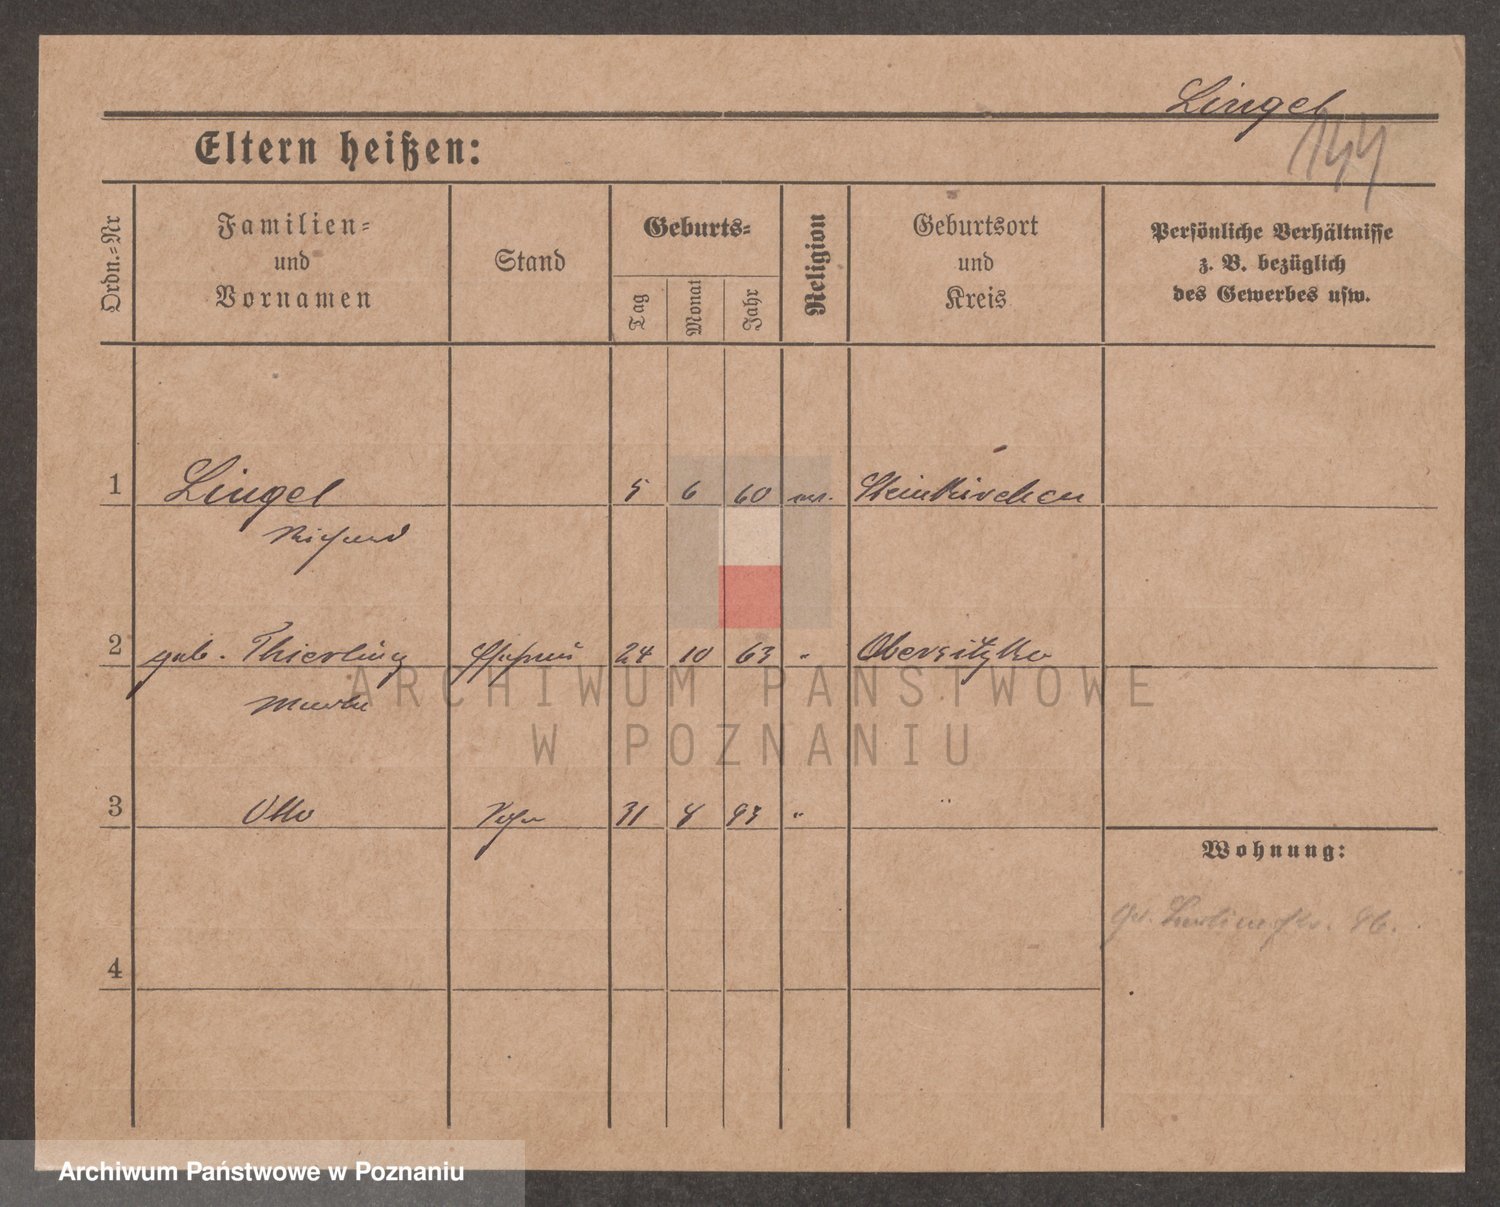 Lingel
144
Eltern heißen:
Ordn.-Nr
Familien-
und
Vornamen
Stand
Geburts-
Tag
Monat
Jahr
Religion
Geburtsort
und
Kreis
Persönliche Verhältnisse
z. B. bezüglich
des Gewerbes usw.
1 Lingel 5 6 60 ev. Steinkirchen
Richard
2 geb. Thierling Ehefrau 24 10 63 " Obersitzko
Martha
3 Otto Sohn 31 8 93 " "
Wohnung:
86.
4
ARCHIWUM PAŃSTWOWE
W POZNANIU
Archiwum Państwowe w Poznaniu